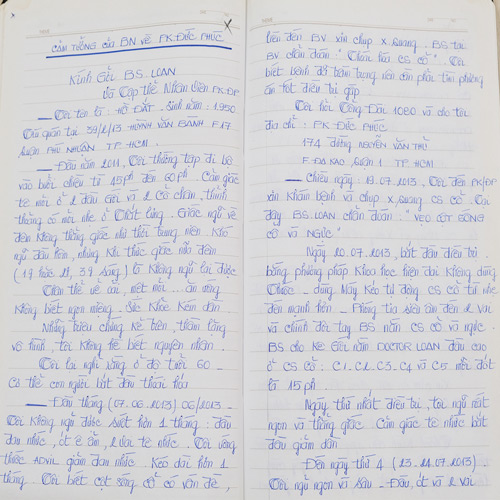 CẢM TƯỞNG CỦA BN VỀ PK.ĐỨC PHÚC
Kính Gửi BS. LOAN
và Tập thể Nhân viên PK-ĐP
_ Tôi tên là : HỒ ĐẮT. Sinh năm : 1950
Chú quán tại : 39/2/13 - HUỲNH VĂN BÁNH F 17
Quận PHÚ NHUẬN TP. HCM.
_ Đầu năm 2011, Tôi thường tập đi bộ
vào buổi chiều từ 45ph đến 60ph. Cảm giác
tê mỏi ở 2 đầu gối và 2 cổ chân, thỉnh
thoảng có mỏi nhẹ ở thắt lưng. Giấc ngủ về
đêm không thẳng giấc như thời trung niên. Khó
ngủ đầu hôm, nhưng khi thức giấc nửa đêm
(1g hoặc 2g, 3g sáng) là không ngủ lại được
Thân thể uể oải, mệt mỏi... ăn uống
không biết ngon miệng. Sức khỏe kém dần.
Những triệu chứng kể trên, thầm lặng
vô hình, tôi không thể biết nguyên nhân.
Tôi lại nghĩ rằng ở độ tuổi 60 _
Cơ thể con người bắt đầu thoái hóa
_ Đầu tháng (07.06.2013) 06/2013
Tôi không ngủ được suốt hơn 1 tháng : đầu
đau nhức, ót ê ẩm, 2 vai tê nhức. Tôi uống
thuốc ADVIL giảm đau nhức. Kéo dài hơn 1
tháng. Tôi biết cột sống cổ có vấn đề,
liền đến BV xin chụp X.Quang. BS tại
BV chẩn đoán : "Thoái hóa CS cổ". Tôi
biết bệnh đã trầm trọng, nên cần phải tìm phương
án tốt điều trị gấp
Tôi hỏi Tổng Đài 1080 và cho tôi
địa chỉ : PK ĐỨC PHÚC
174 đường NGUYỄN VĂN THỦ
F ĐA KAO, Quận 1 TP HCM
_ Chiều ngày : 19.07.2013, Tôi đến PK/ĐP
xin khám bệnh và chụp X.Quang CS cổ. Tại
đây BS. LOAN chẩn đoán : "VẸO CỘT SỐNG
CỔ và NGỰC"
Ngày 20.07.2013, bắt đầu điều trị
bằng phương pháp Khoa học hiện đại không dùng
thuốc _ dùng Máy Kéo tự động CS cổ từ nhẹ
đến mạnh hơn _ Phóng tia siêu âm đến 2 vai
và chỉnh đốt tay BS nắn CS cổ và ngực.
BS cho kê gối nằm DOCTOR LOAN đầu cao
ở CS cổ : C1. C2. C3. C4 và C5 mỗi đốt
là 15 ph.
Ngày thứ nhất điều trị, tôi ngủ rất
ngon và thẳng giấc. Cảm giác tê nhức bắt
đầu giảm dần
Đến ngày thứ 4 (23-24.07.2013).
Tôi ngủ ngon và sâu _ Đầu, ót và 2 vai